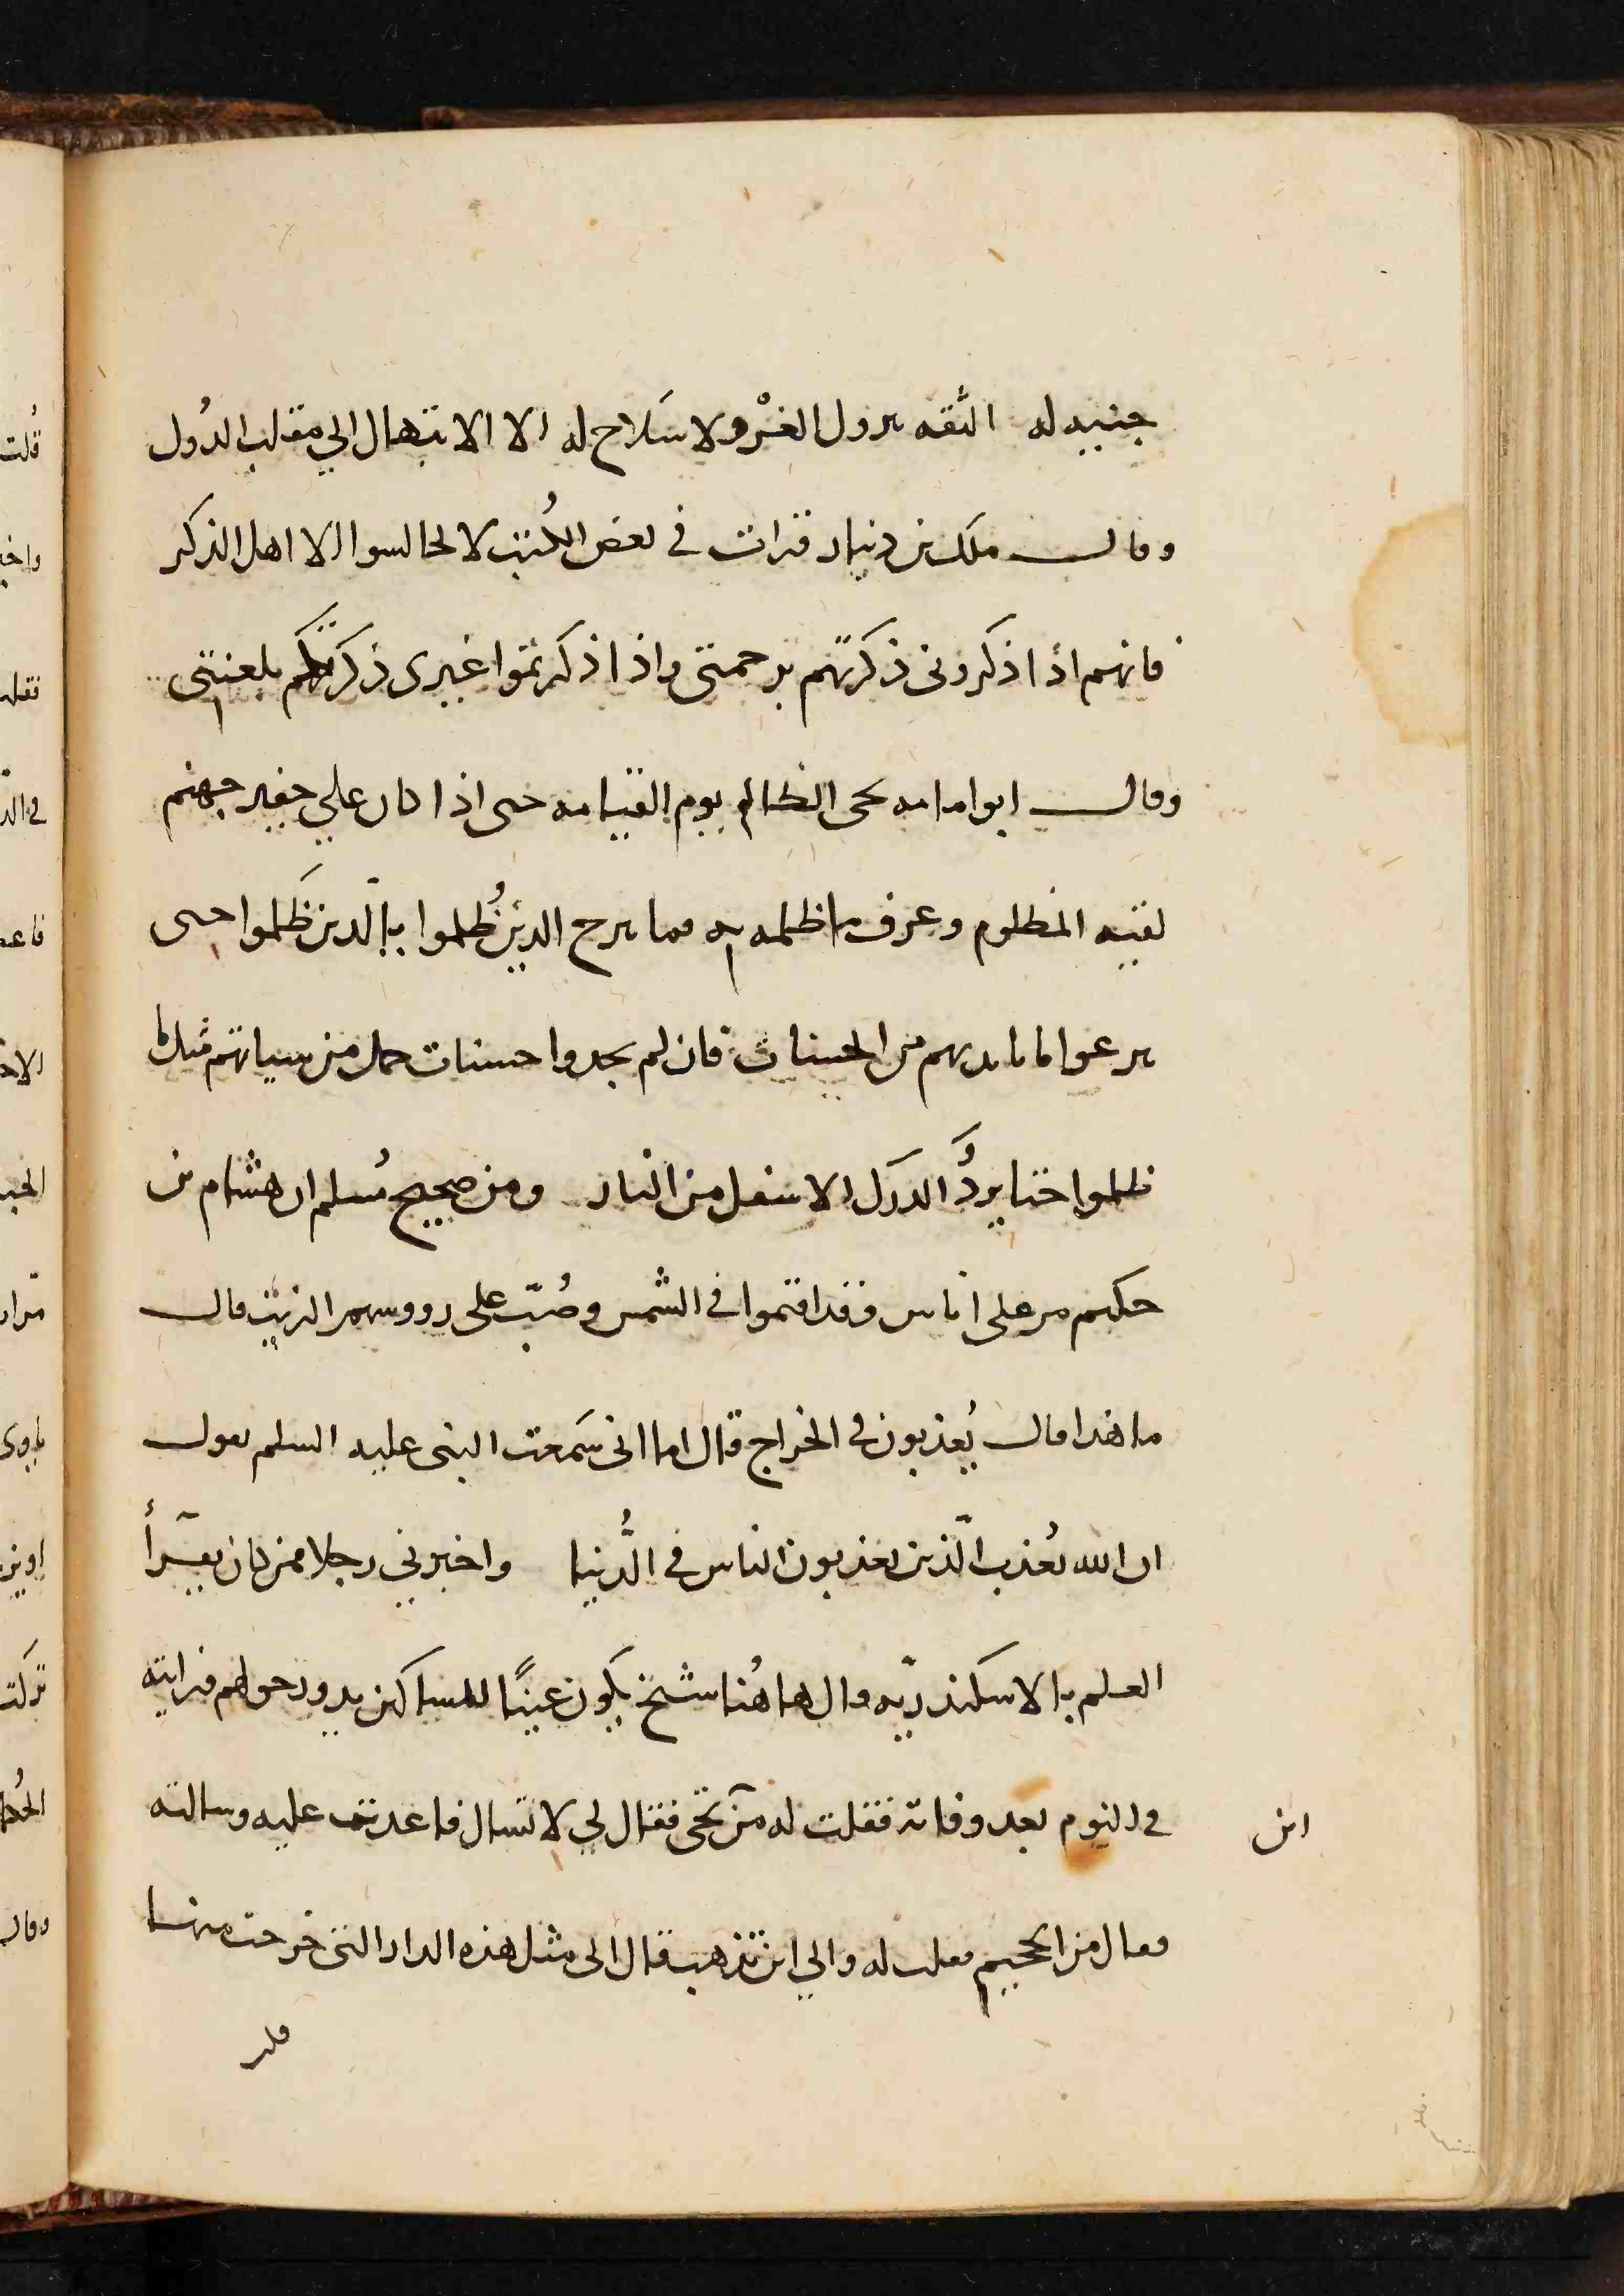 جنبيه له الثقه بنزول الغير ولا سَلاح له الا الابتهال الي مقلب الدُول
وقال ملك بن دينار قرات في بعض الكُتب لا تجالسوا الا اهل الذكر
فانهم اذا ذكروني ذكرتهم برحمتي واذا ذكرتموا غيرى ذكرتكم بلعنتي
وقال ابو امامه يجي الظالم يوم القيامه حتى اذا كان علي جفير جهنم
لقيه المظلوم وعرف ما ظلمه به فما يبرح الدين ظُلموا بالّدين ظَلموا حتى
ينزعوا ما بايديهم من الحسنات فان لم يجدوا حسنات حمل من سياتهم مثل ما
ظلموا حتا يردَُّ الدرَك الاسفل من النار ومن صحيح مُسلم ان هشام بن
حكيم مر على اناس وقد اقتموا في الشمس وصُبّ على رووسهم الزيت فقال
ما هدا فقال يُعذبون في الخراج قال اما انى سَمعت النبى عليه السلم يقول
ان الله يُعذب الّذين يعذبون الناس في الدُّنيا واخبرني رجلا ممن كان يقرأ
العلم بالاسكندريّه قال ها هُنا شيخ يكون عينًا للمساكن يدور حولهم فرايته
في النوم بعد وفاته فقلت له من تجى فقال لي لا تسال فاعدت عليه وسالته
اين
فقال من الجحيم فقلت له والي اين تذهب قال الى مثل هذه الدار التى خرجت منها